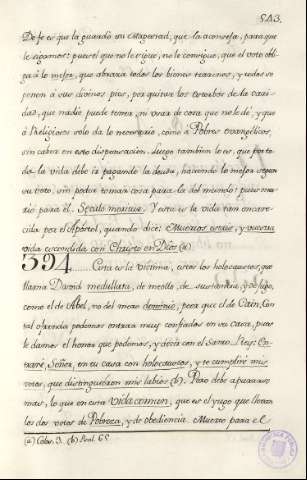 543.
De fe es que la guardó su Magestad, que la aconseja, para que
le sigamos: pues el que no le sigue, no le consigue, que el voto obli-
ga à lo mejor, que abraza todos los bienes terrenos, y todos se
ponen à sus divinos pies, por quitar los estorbos de la cari-
dad, que nadie puede tener, ni usar de cosa que no le dé, y que
à Religiosos solo da lo necesario, como à Pobres evangelicos,
sin caber en esto dispensacion. Luego tambien lo es, que por to-
da la vida debe ir pagando la deuda, haciendo lo mejor segun
su voto, sin poder tomar cosa para la del mundo: pues mu-
rió para él. Sæculo moriturus. Y esta es la vida tan encare-
cida por el Apostol, quando dice: Muertos estais, y vuestra
vida escondida con Christo en Dios (a)
394 Esta es la victima, estos los holocaustos, que
llama David medullata, de meollo, de sustancia, y de hijo,
como el de Abel, no del mero dominio, peor que el de Caín. Con
tal ofrenda podemos entrar muy confiados en su casa, pues
le damos el honor que podemos, y decir con el Santo Rey: En-
traré, Señor, en tu casa con holocaustos, y te cumpliré mis
votos, que distinguieron mis labios (b). Pero debe apurarse
mas, lo que en esta vida comun, que es el yugo que llevan
los dos votos de Pobreza, y de obediencia. Muerto para el
(a) Colos. 3. (b) Psal. 65.